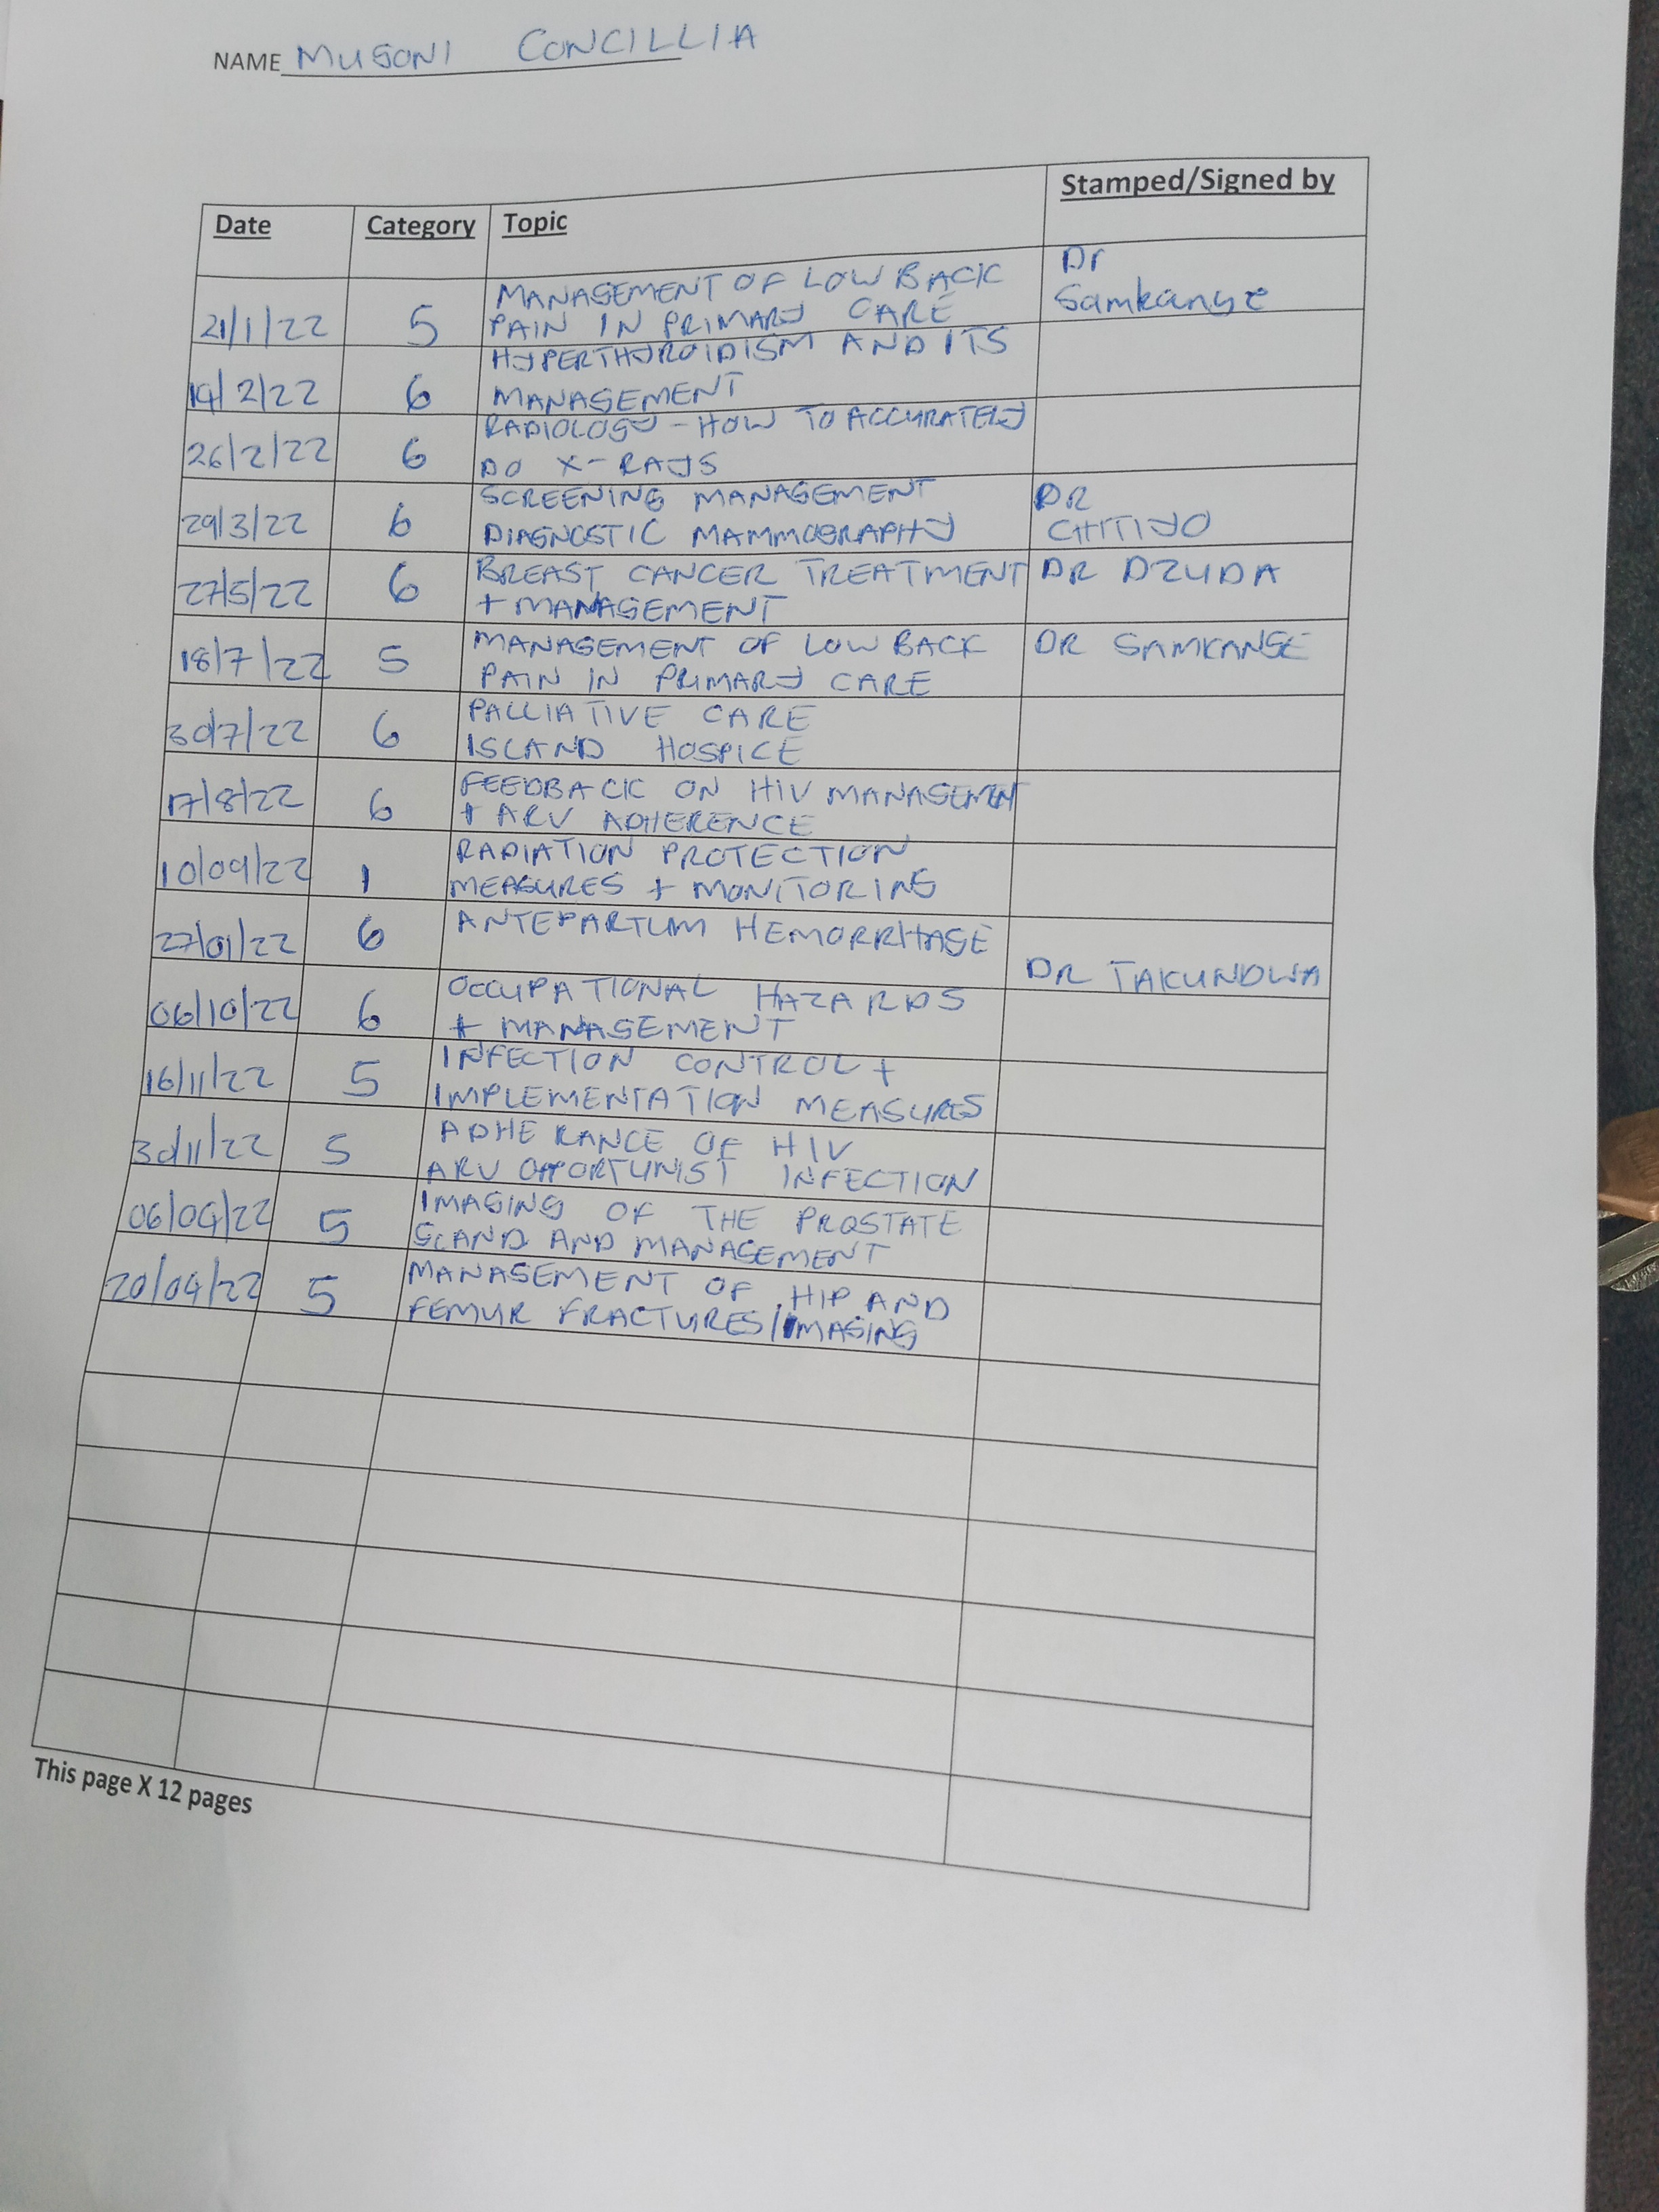 NAME MUSONI CONCILLIA
Date Category Topic Stamped/Signed by
MANAGEMENT OF LOW BACK Dr
21/1/22 5 PAIN IN PRIMARY CARE Samkange
HYPERTHYROIDISM AND ITS
19/2/22 6 MANAGEMENT
RADIOLOGY - HOW TO ACCURATELY
26/2/22 6 DO X-RAYS
SCREENING MANAGEMENT DR
29/3/22 6 DIAGNOSTIC MAMMOGRAPHY CHITIYO
27/5/22 6 BREAST CANCER TREATMENT DR DZUDA
+ MANAGEMENT
18/7/22 5 MANAGEMENT OF LOW BACK DR SAMKANGE
PAIN IN PRIMARY CARE
30/7/22 6 PALLIATIVE CARE
ISLAND HOSPICE
17/8/22 6 FEEDBACK ON HIV MANAGEMENT
+ ARV ADHERENCE
10/09/22 1 RADIATION PROTECTION
MEASURES + MONITORING
27/01/22 6 ANTEPARTUM HEMORRHAGE
DR TAKUNDWA
06/10/22 6 OCCUPATIONAL HAZARDS
+ MANAGEMENT
16/11/22 5 INFECTION CONTROL +
IMPLEMENTATION MEASURES
30/11/22 5 ADHERANCE OF HIV
ARV OPPORTUNIST INFECTION
06/09/22 5 IMAGING OF THE PROSTATE
GLAND AND MANAGEMENT
20/09/22 5 MANAGEMENT OF HIP AND
FEMUR FRACTURES/IMAGING
This page X 12 pages